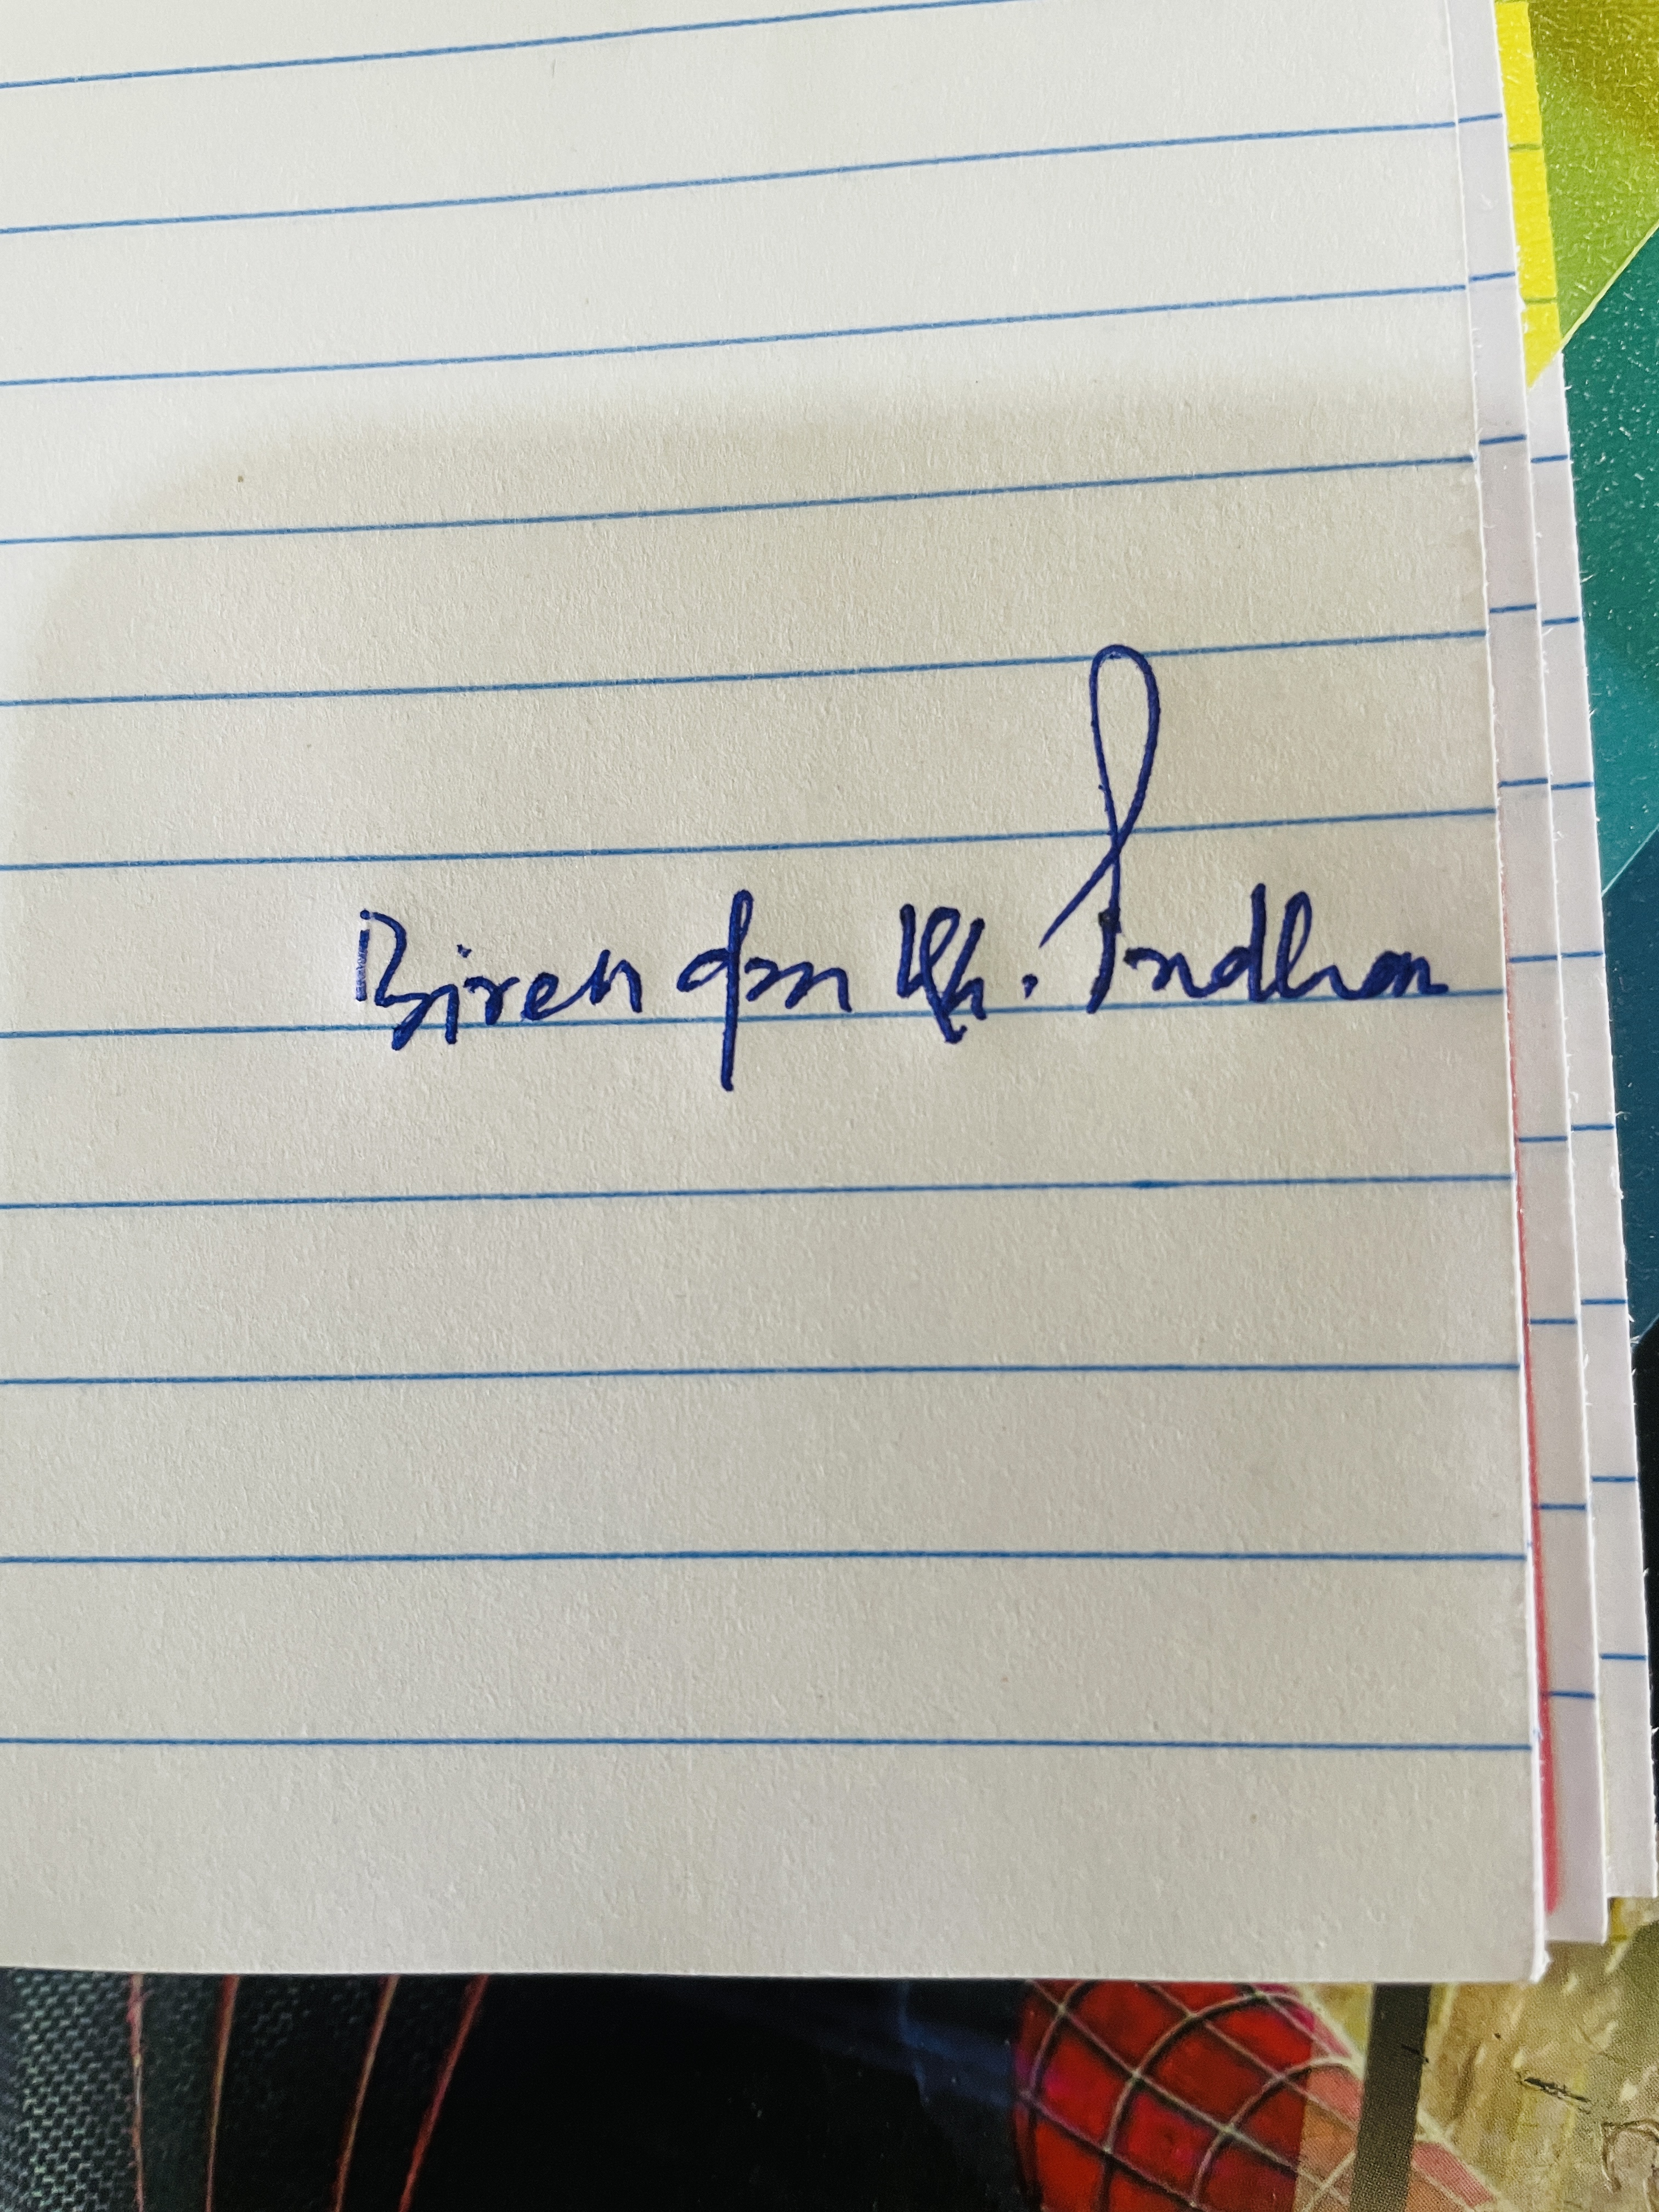 Birendra Kr. Pradhan